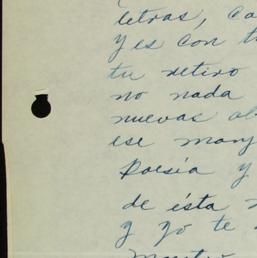 letras, ca
y es con t
tu retiro
no nada
nuevas al
ese man
Poesía y
de ésta
y yo te